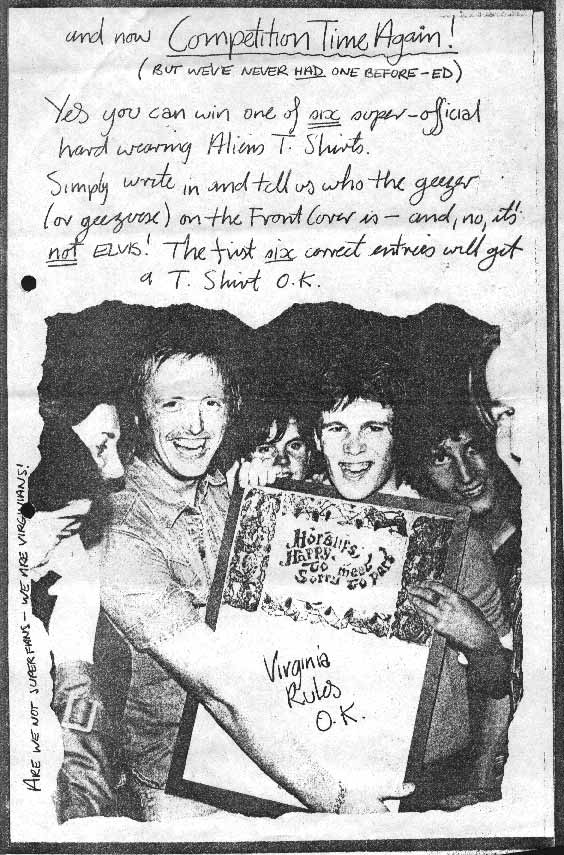 and now Competition Time Again!
(BUT WE'VE NEVER HAD ONE BEFORE - ED)
Yes you can win one of six super-official
hard wearing Aliens T. Shirts.
Simply write in and tell us who the geezer
(or geezeress) on the Front Cover is - and, no, it's
not ELVIS! The first six correct entries will get
a T. Shirt O.K.
ARE WE NOT SUPERFANS - WE ARE VIRGINIANS!
Horslips,
Happy
to meet,
Sorry to part
Virginia
Rules
O.K.